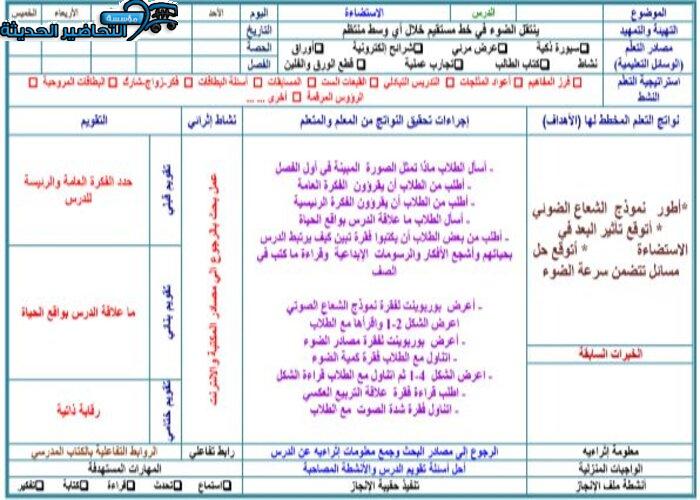 مؤسسة
التحاضير الحديثة
الموضوع الدرس الاستضاءة اليوم الأحد الأربعاء الخميس
التهيئة والتمهيد ينتقل الضوء في خط مستقيم خلال أي وسط منتظم التاريخ
مصادر التعلم سبورة ذكية عرض مرئي شرائح إلكترونية أوراق الحصة
(الوسائل التعليمية) نشاط كتاب الطالب تجارب عملية قطع الورق والفلين الفصل
استراتيجية التعلم فرز المفاهيم أعواد المثلجات التدريس التبادلي القبعات الست المسابقات أسئلة البطاقات فكر-زواج-شارك البطاقات المروحية
النشط الرؤوس المرقمة أخرى ... ...
نواتج التعلم المخطط لها (الأهداف) إجراءات تحقيق النواتج من المعلم والمتعلم نشاط إثرائي التقويم
*أطور نموذج الشعاع الضوئي
* أتوقع تأثير البعد في
الاستضاءة * أتوقع حل
مسائل تتضمن سرعة الضوء
الخبرات السابقة
- أسأل الطلاب ماذا تمثل الصورة المبينة في أول الفصل
- أطلب من الطلاب أن يقرؤون الفكرة العامة
- أطلب من الطلاب أن يقرؤون الفكرة الرئيسية
- أسأل الطلاب ما علاقة الدرس بواقع الحياة
- أطلب من بعض الطلاب أن يكتبوا فقرة تبين كيف يرتبط الدرس
بحياتهم وأشجع الأفكار والرسومات الإبداعية وقراءة ما كتب في
الصف
- أعرض بوربوينت لفقرة نموذج الشعاع الصوتي
اعرض الشكل 2-1 واقرأها مع الطلاب
- أعرض بوربوينت لفقرة مصادر الضوء
- اتناول مع الطلاب فقرة كمية الضوء
- اعرض الشكل 4-1 ثم اتناول مع الطلاب قراءة الشكل
- اطلب قراءة فقرة علاقة التربيع العكسي
- اتناول فقرة شدة الصوت مع الطلاب
عمل بحث بالرجوع الى مصادر المكتبية والانترنت
تقويم قبلي
حدد الفكرة العامة والرئيسة
للدرس
تقويم بنائي
ما علاقة الدرس بواقع الحياة
تقويم ختامي
رقابة ذاتية
معلومة إثرائيه الرجوع إلى مصادر البحث وجمع معلومات إثرائيه عن الدرس رابط تفاعلي الروابط التفاعلية بالكتاب المدرسي
الواجبات المنزلية أحل أسئلة تقويم الدرس والأنشطة المصاحبة المهارات المستهدفة
أنشطة ملف الإنجاز تنفيذ حقيبة الإنجاز استماع تحدث قراءة كتابة تفكير